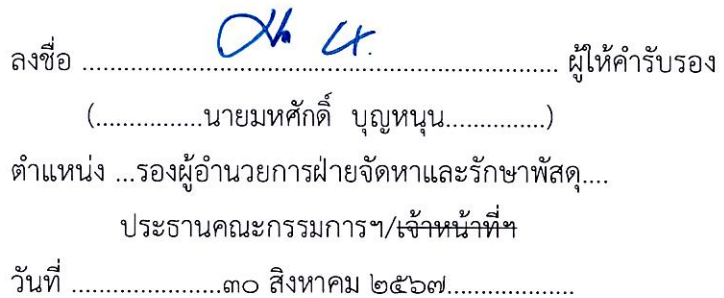 ลงชื่อ .................................................................... ผู้ให้คำรับรอง
(................นายมหศักดิ์ บุญหนุน...............)
ตำแหน่ง ...รองผู้อำนวยการฝ่ายจัดหาและรักษาพัสดุ....
ประธานคณะกรรมการฯ/เจ้าหน้าที่ฯ
วันที่ ......................๓๐ สิงหาคม ๒๕๖๗...................